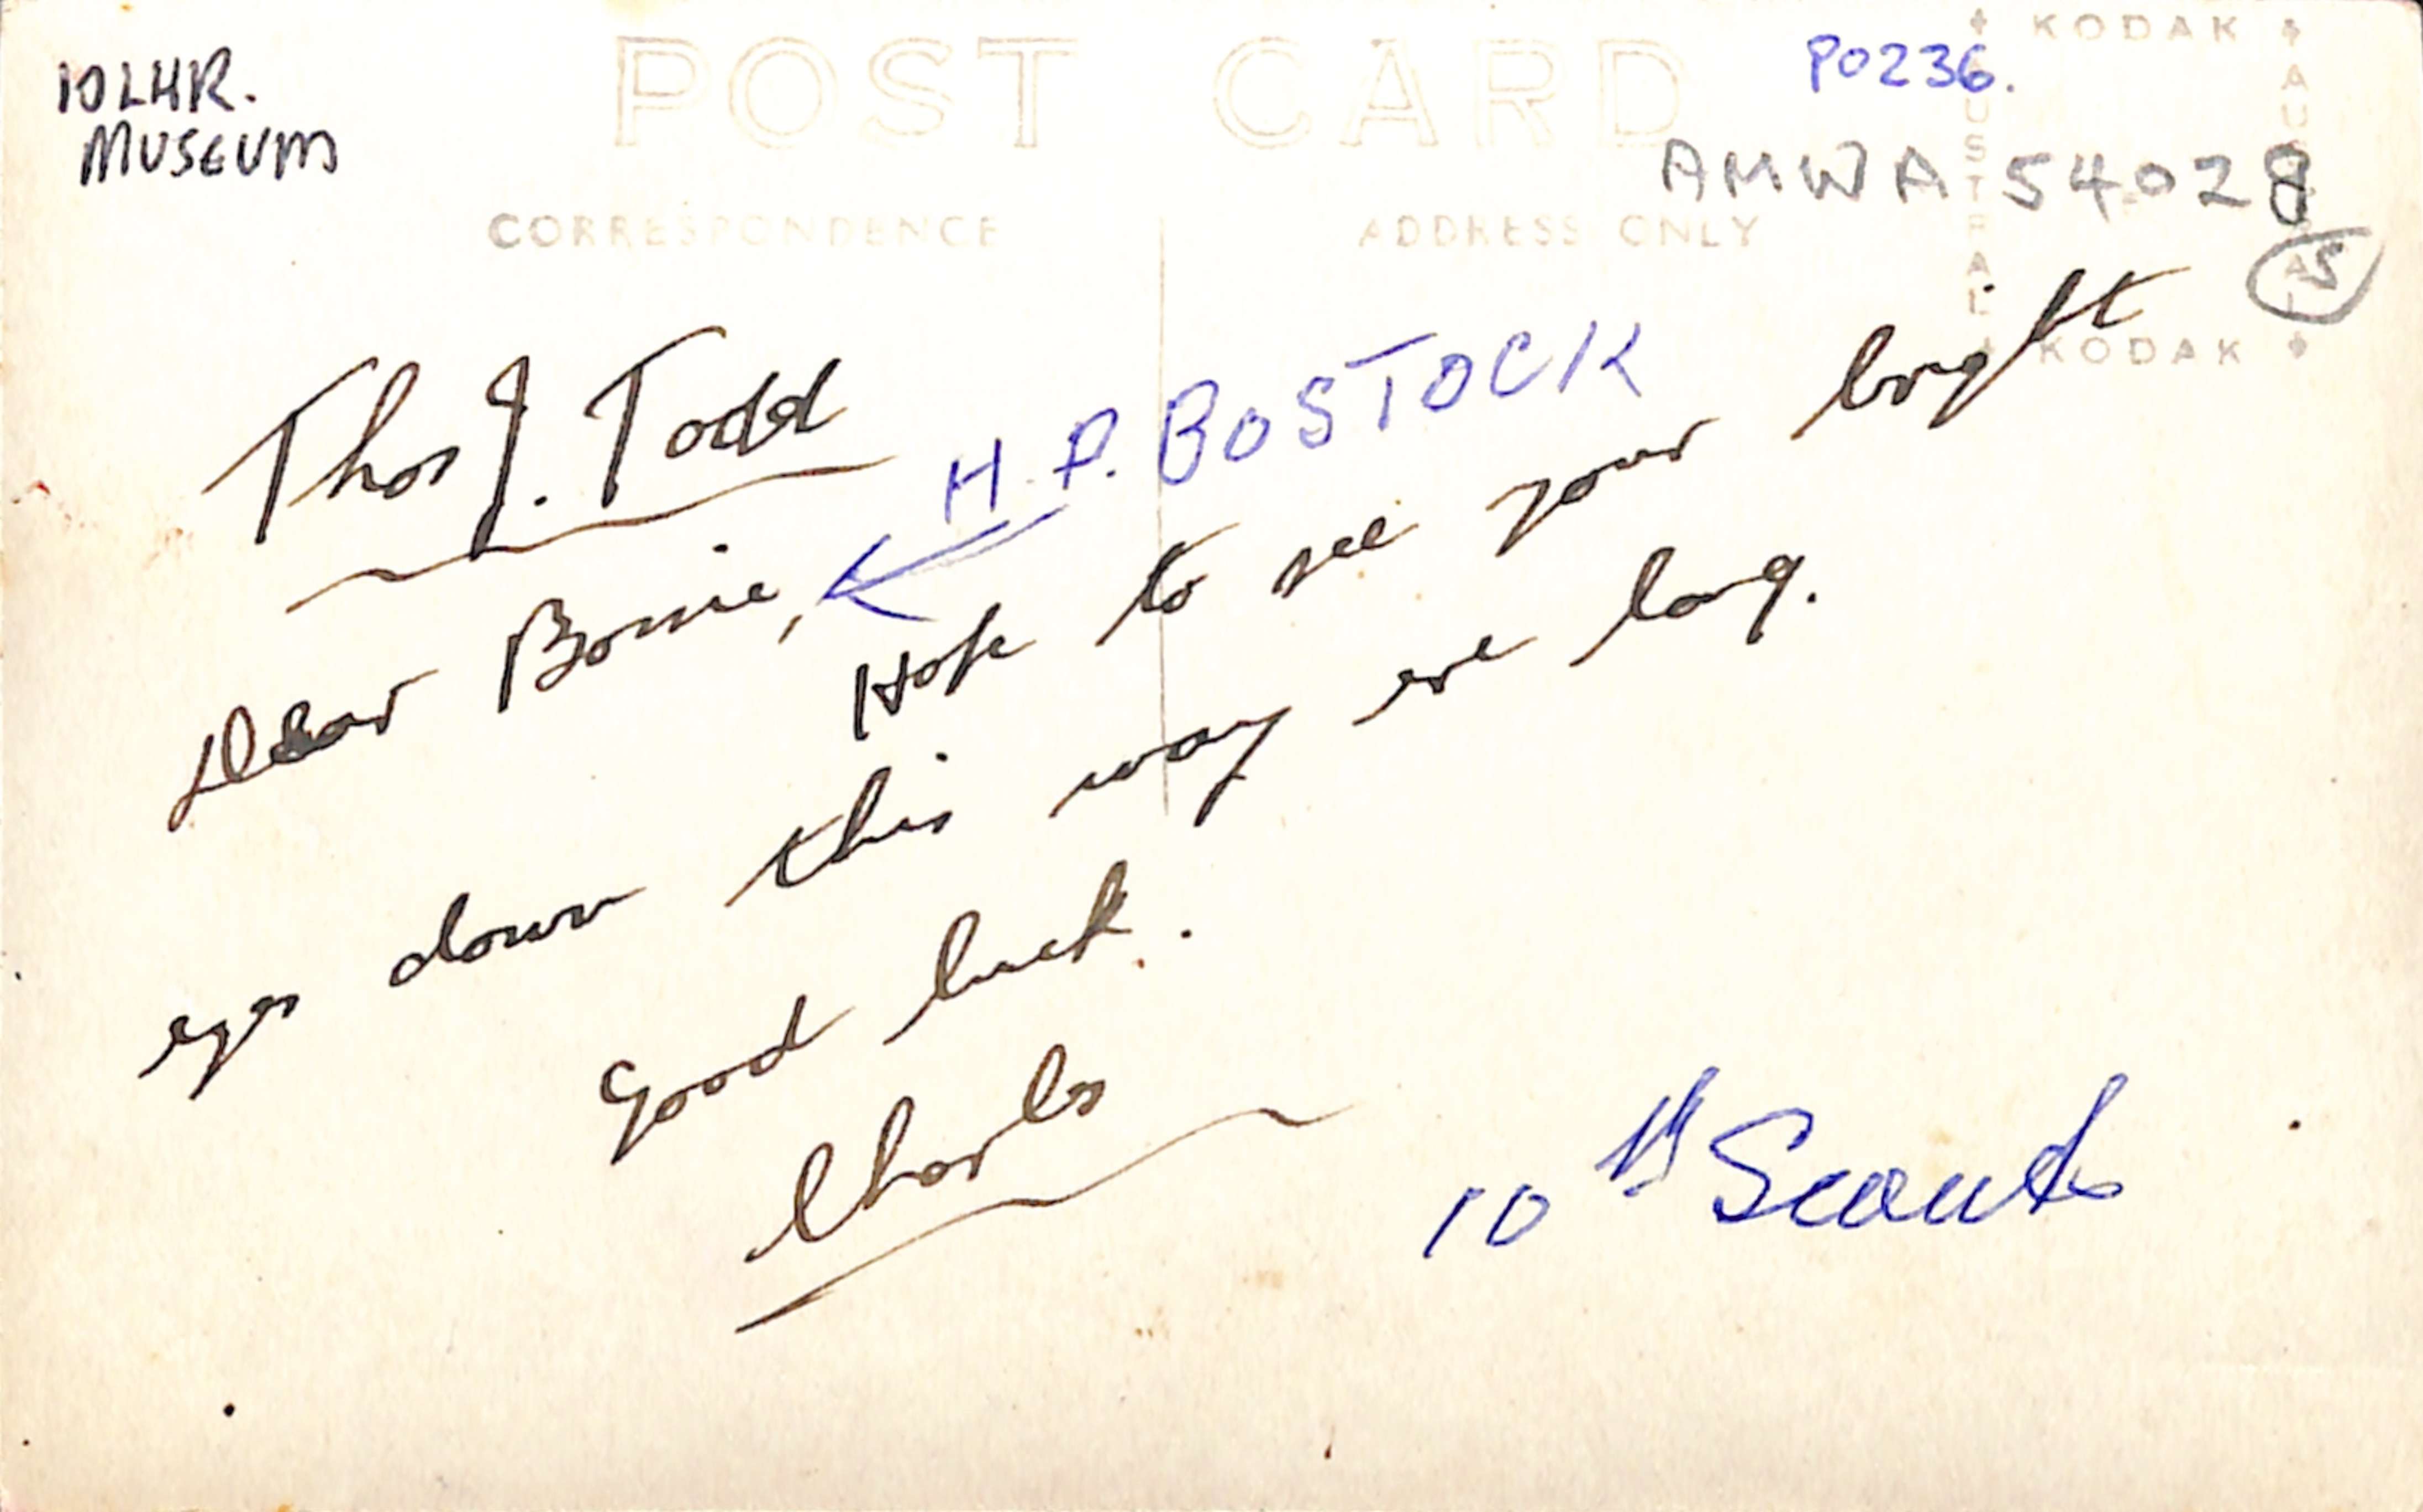 10LHR.
MUSEUM
POST CARD
P0236.
KODAK
AUSTRAL
AUSTRAL
KODAK
AMWA 54028
5
CORRESPONDENCE
ADDRESS ONLY
Thos J. Todd
H.P. BOSTOCK
Dear Bonnie,
Hope to see your bright
eyes down this way ere long.
Good luck.
Charles
10th Scouts